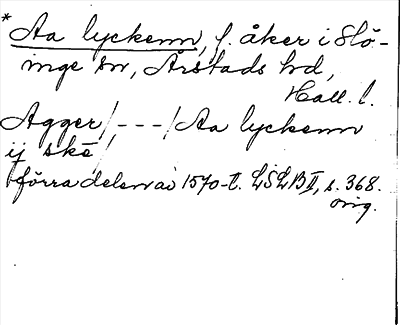 * Aa lyckenn, f. åker i Slö-
inge sn, Årstads hd,
Hall. l.
Agger /---/ Aa lyckenn
ij skē
förra delen av 1570-t. LSLB II, s. 368.
orig.